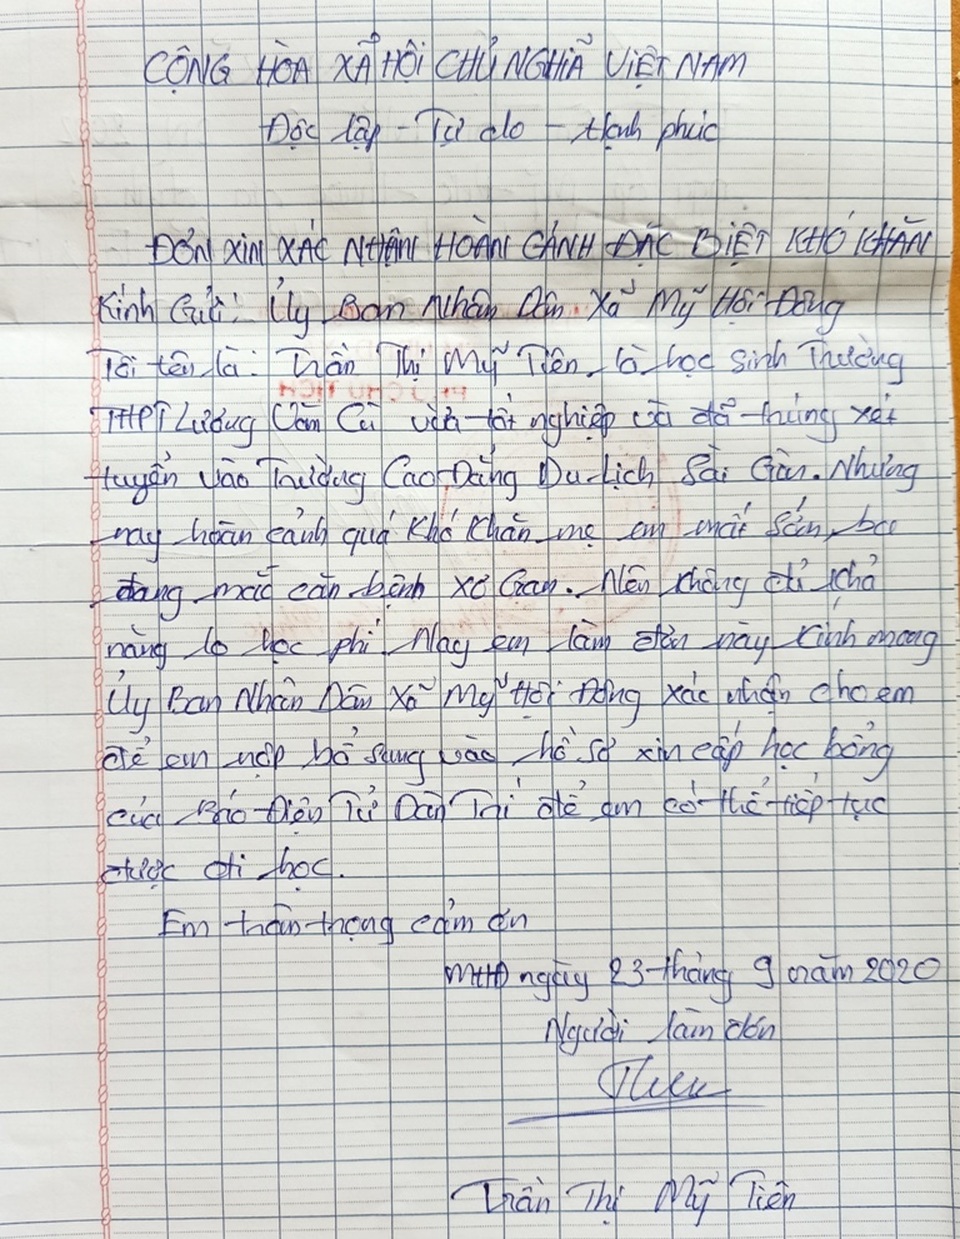 CỘNG HÒA XÃ HỘI CHỦ NGHĨA VIỆT NAM
Độc lập - Tự do - Hạnh phúc
ĐƠN XIN XÁC NHẬN HOÀN CẢNH ĐẶC BIỆT KHÓ KHĂN
Kính Gửi: Ủy Ban Nhân Dân Xã Mỹ Hội Đông
Tôi tên là: Trần Thị Mỹ Tiên, là học sinh Trường
THPT Lương Văn Cù vừa tốt nghiệp và đã trúng xét
tuyển vào Trường Cao Đẳng Du Lịch Sài Gòn. Nhưng
nay hoàn cảnh quá khó khăn mẹ em mất sớm, ba
đang mắc căn bệnh xơ Gan. Nên không đủ khả
năng lo học phí Nay em làm đơn này kính mong
Ủy Ban Nhân Dân Xã Mỹ Hội Đông xác nhận cho em
để em nộp bổ sung vào hồ sơ xin cấp học bổng
của Báo Điện Tử Dân Trí để em có thể tiếp tục
được đi học.
Em trân trọng cảm ơn
MHĐ ngày 23 tháng 9 năm 2020
Người làm đơn
Trần Thị Mỹ Tiên